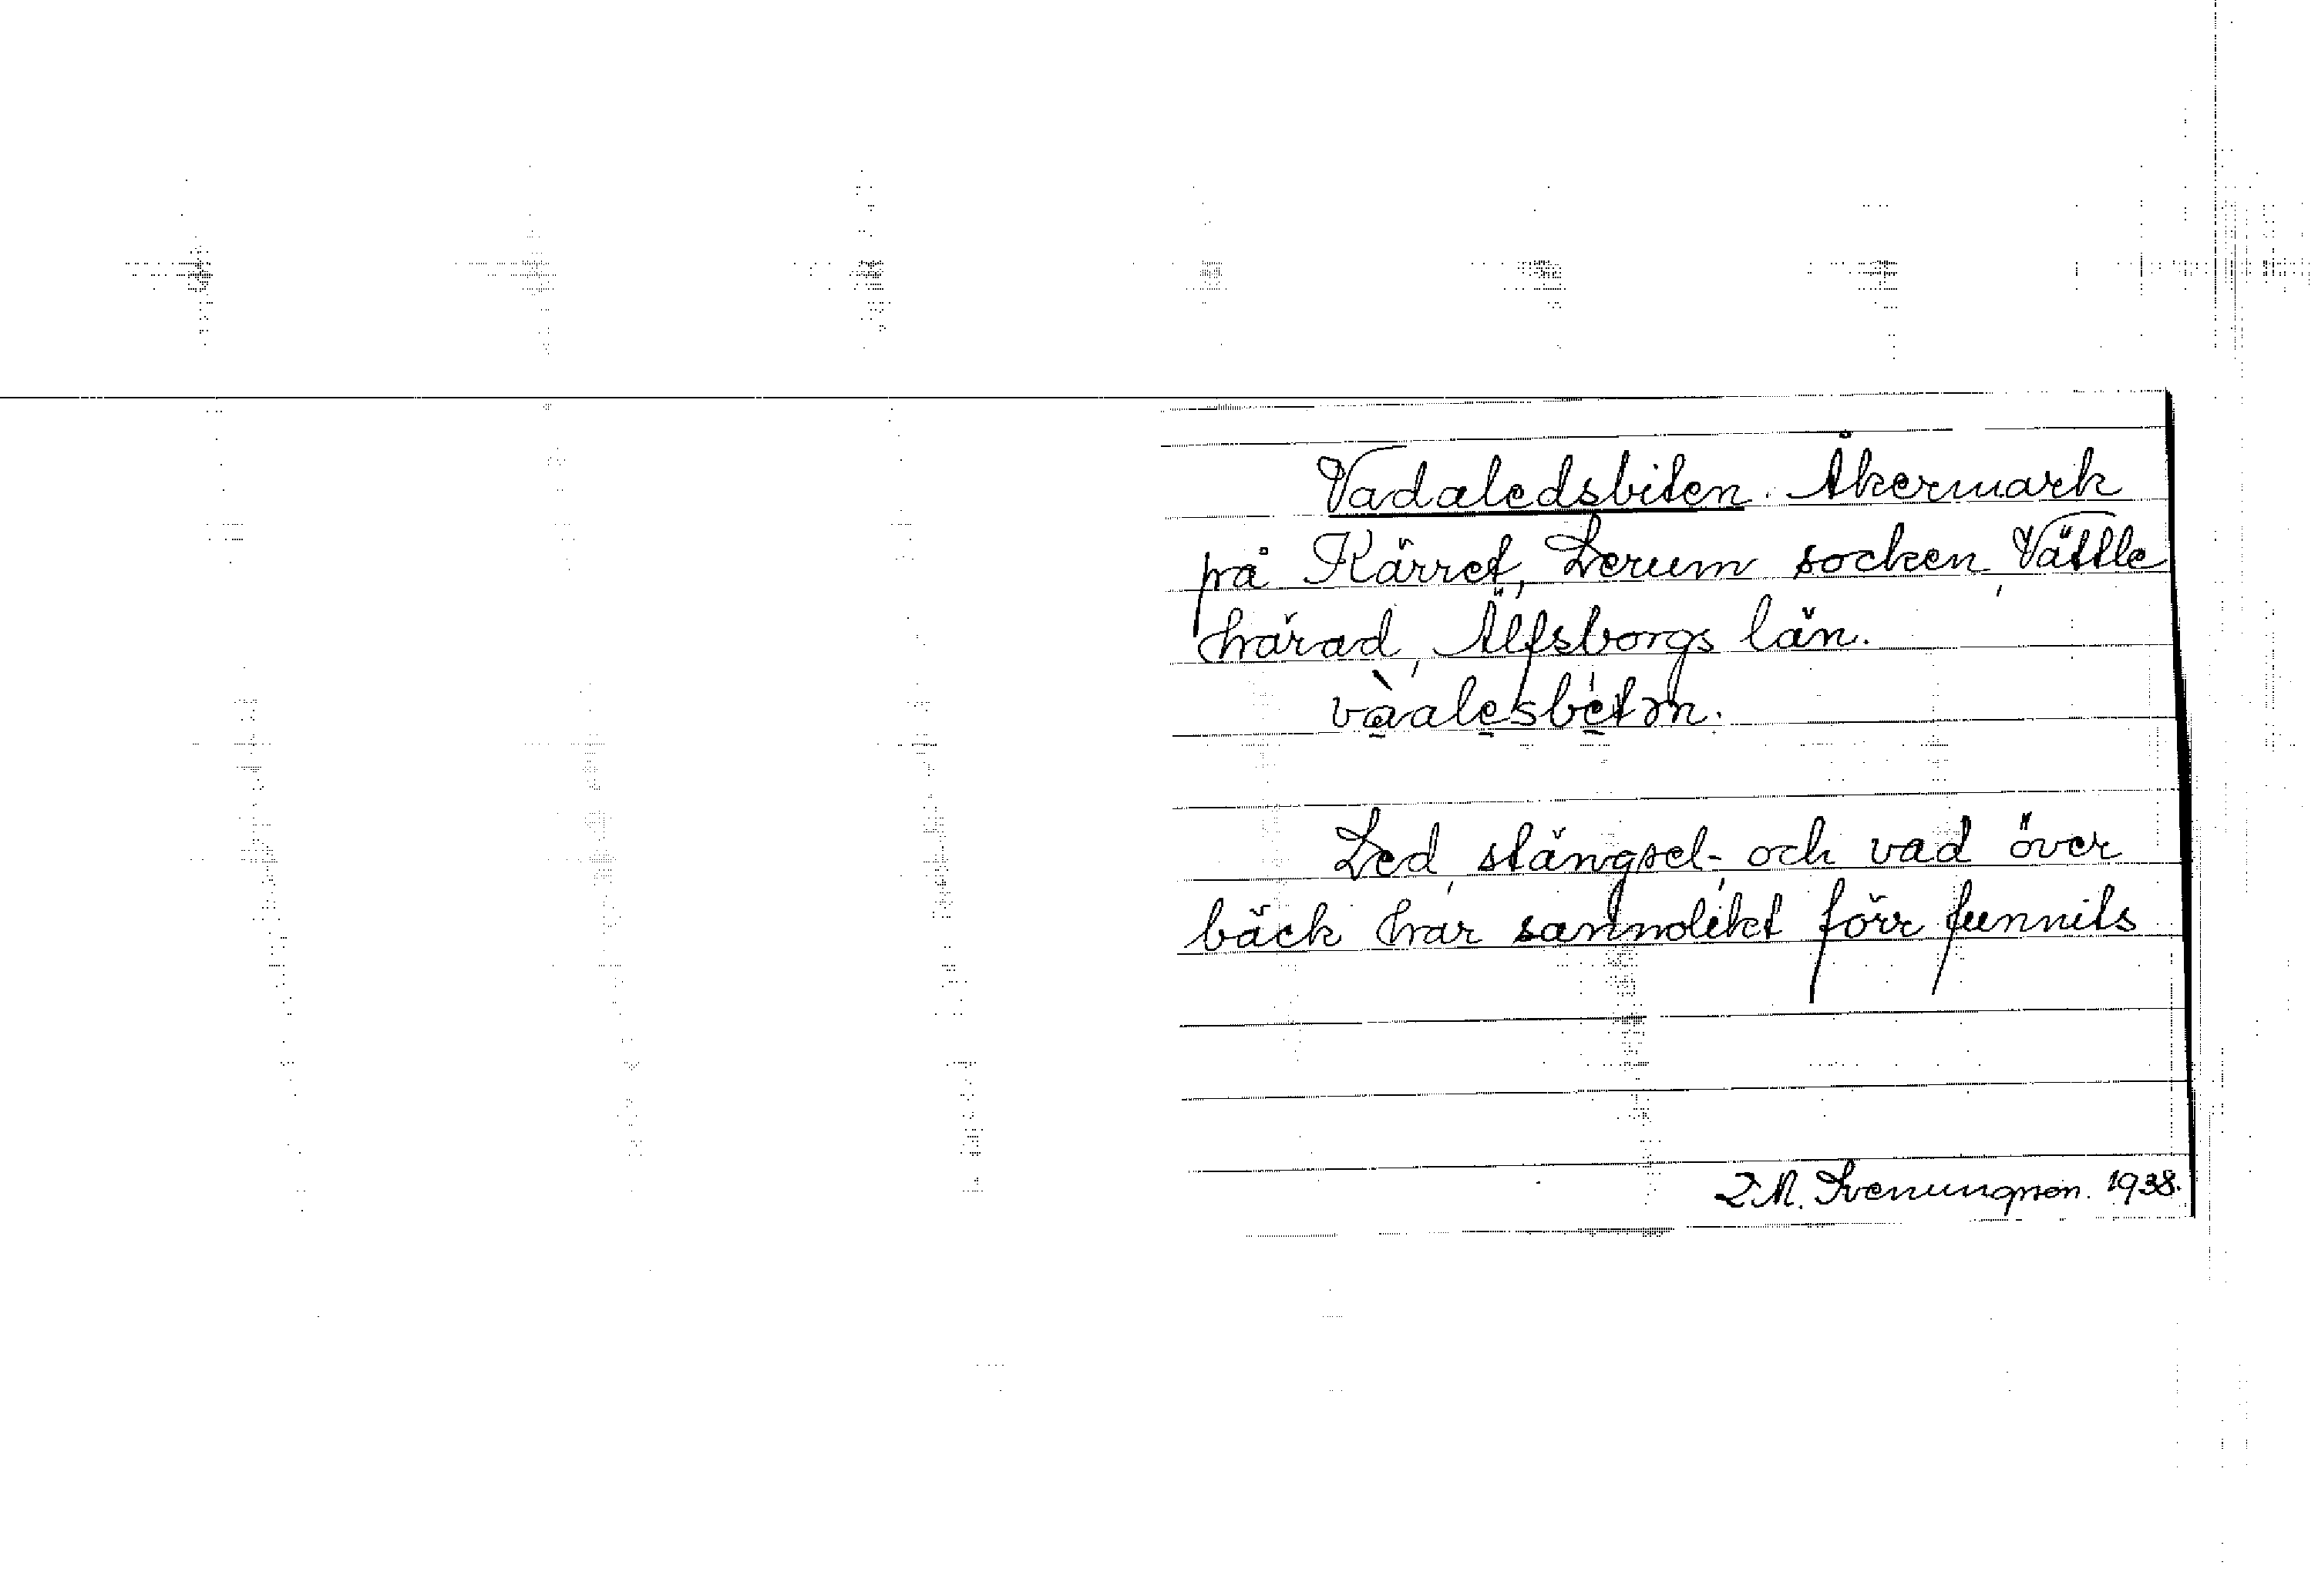 Vadaledsbiten. Åkermark
på Kärret, Lerum socken, Vättle
härad, Älfsborgs län.
vàalesbétən.
Led, stängsel-, och vad över
bäck har sannolikt förr funnits
Svenungson. 1938.